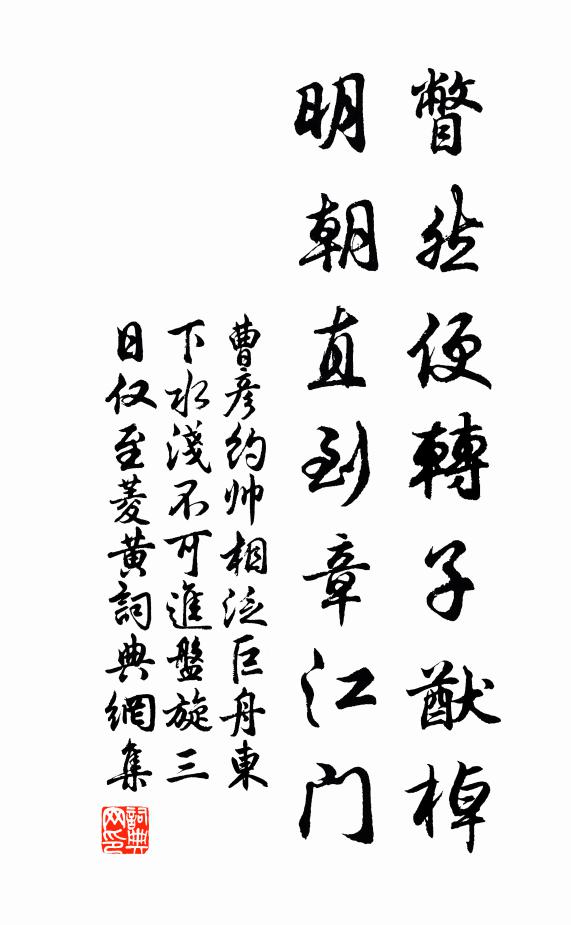 瞥然便轉子猷棹
明朝直到章江門
曹彦約帅相泛巨舟東
下水淺不可進盤旋三
日仅至菱黄詞典網集
詞典
网印